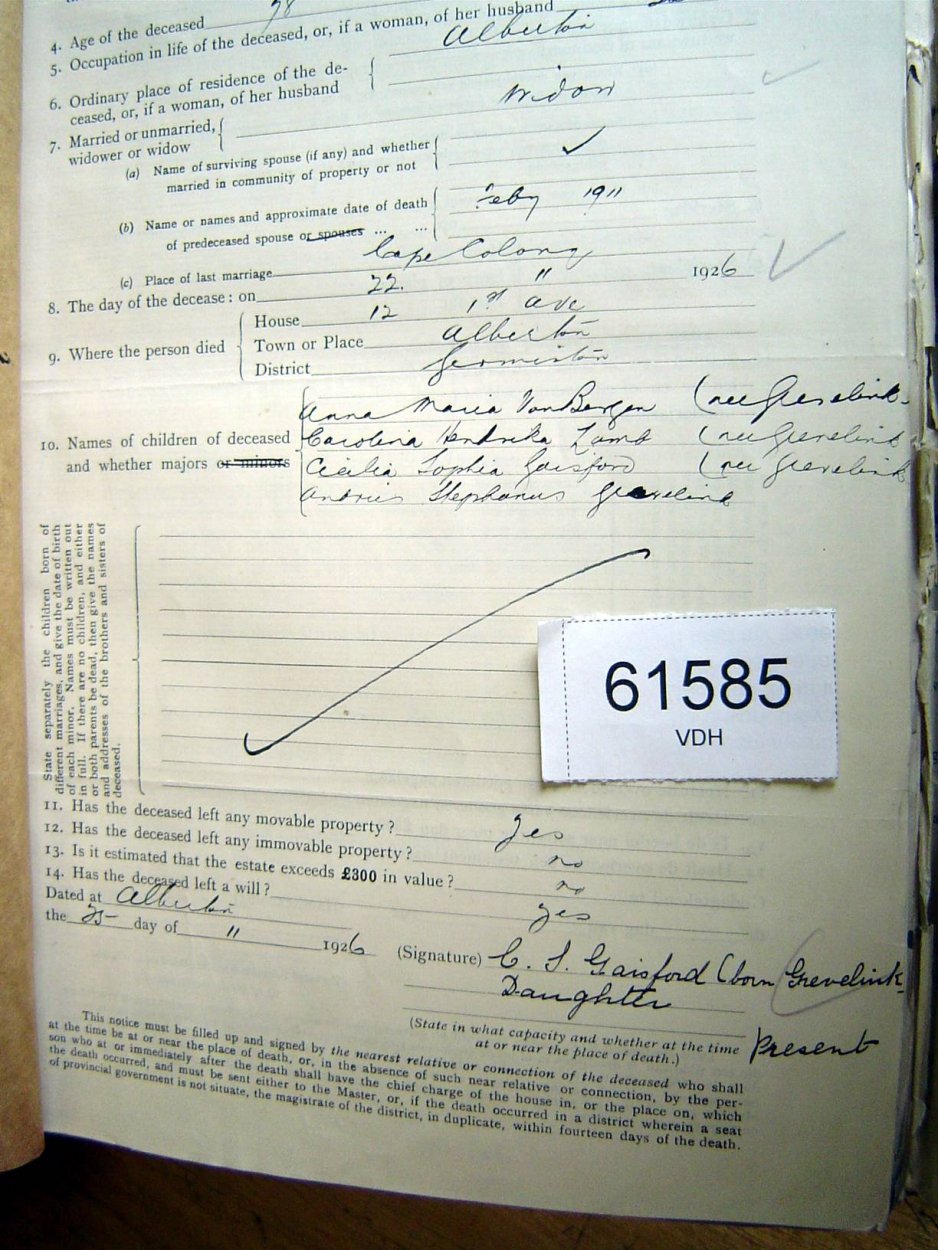 4. Age of the deceased 78
5. Occupation in life of the deceased, or, if a woman, of her husband
6. Ordinary place of residence of the deceased, or, if a woman, of her husband Alberton
7. Married or unmarried, widower or widow Widow
(a) Name of surviving spouse (if any) and whether married in community of property or not ✓
(b) Name or names and approximate date of death of predeceased spouse or spouses ... ... Feby 1911
(c) Place of last marriage Cape Colony
8. The day of the decease : on 22. " 1926
9. Where the person died
House 12 1st Ave
Town or Place Alberton
District Germiston
10. Names of children of deceased and whether majors or minors
Anna Maria VonBergen (nee Grevelink
Carolina Hendrika Lamb (nee Grevelink
Cicilia Sophia Gaisford (nee Grevelink
Andries Stephanus Grevelink
State separately the children born of
different marriages, and give the date of birth
of each minor. Names must be written out
in full. If there are no children, and either
or both parents be dead, then give the names
and addresses of the brothers and sisters of
deceased.
61585
VDH
11. Has the deceased left any movable property ? yes
12. Has the deceased left any immovable property ? no
13. Is it estimated that the estate exceeds £300 in value ? no
14. Has the deceased left a will ? yes
Dated at Alberton
the 25 day of " 1926
(Signature) C. S. Gaisford (born Grevelink
Daughter
(State in what capacity and whether at the time
at or near the place of death.) Present
This notice must be filled up and signed by the nearest relative or connection of the deceased who shall
at the time be at or near the place of death, or, in the absence of such near relative or connection, by the per-
son who at or immediately after the death shall have the chief charge of the house in, or the place on, which
the death occurred, and must be sent either to the Master, or, if the death occurred in a district wherein a seat
of provincial government is not situate, the magistrate of the district, in duplicate, within fourteen days of the death.